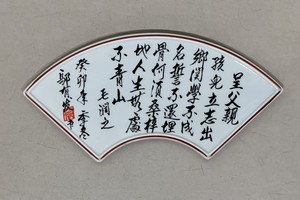 呈父親
孩兒立志出
鄉関學不成
名誓不還埋
骨何須桑梓
地人生無處
不青山 毛润之
癸卯年季冬